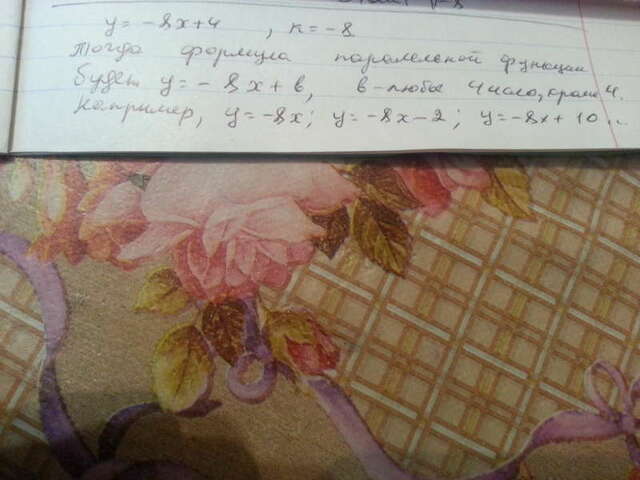 y = -8x+4 , к = -8
Тогда формула паралельной функции
будет y = - 8x + в, в-любое число, кроме 4.
Например, y = -8x; y = -8x - 2; y = -8x + 10...